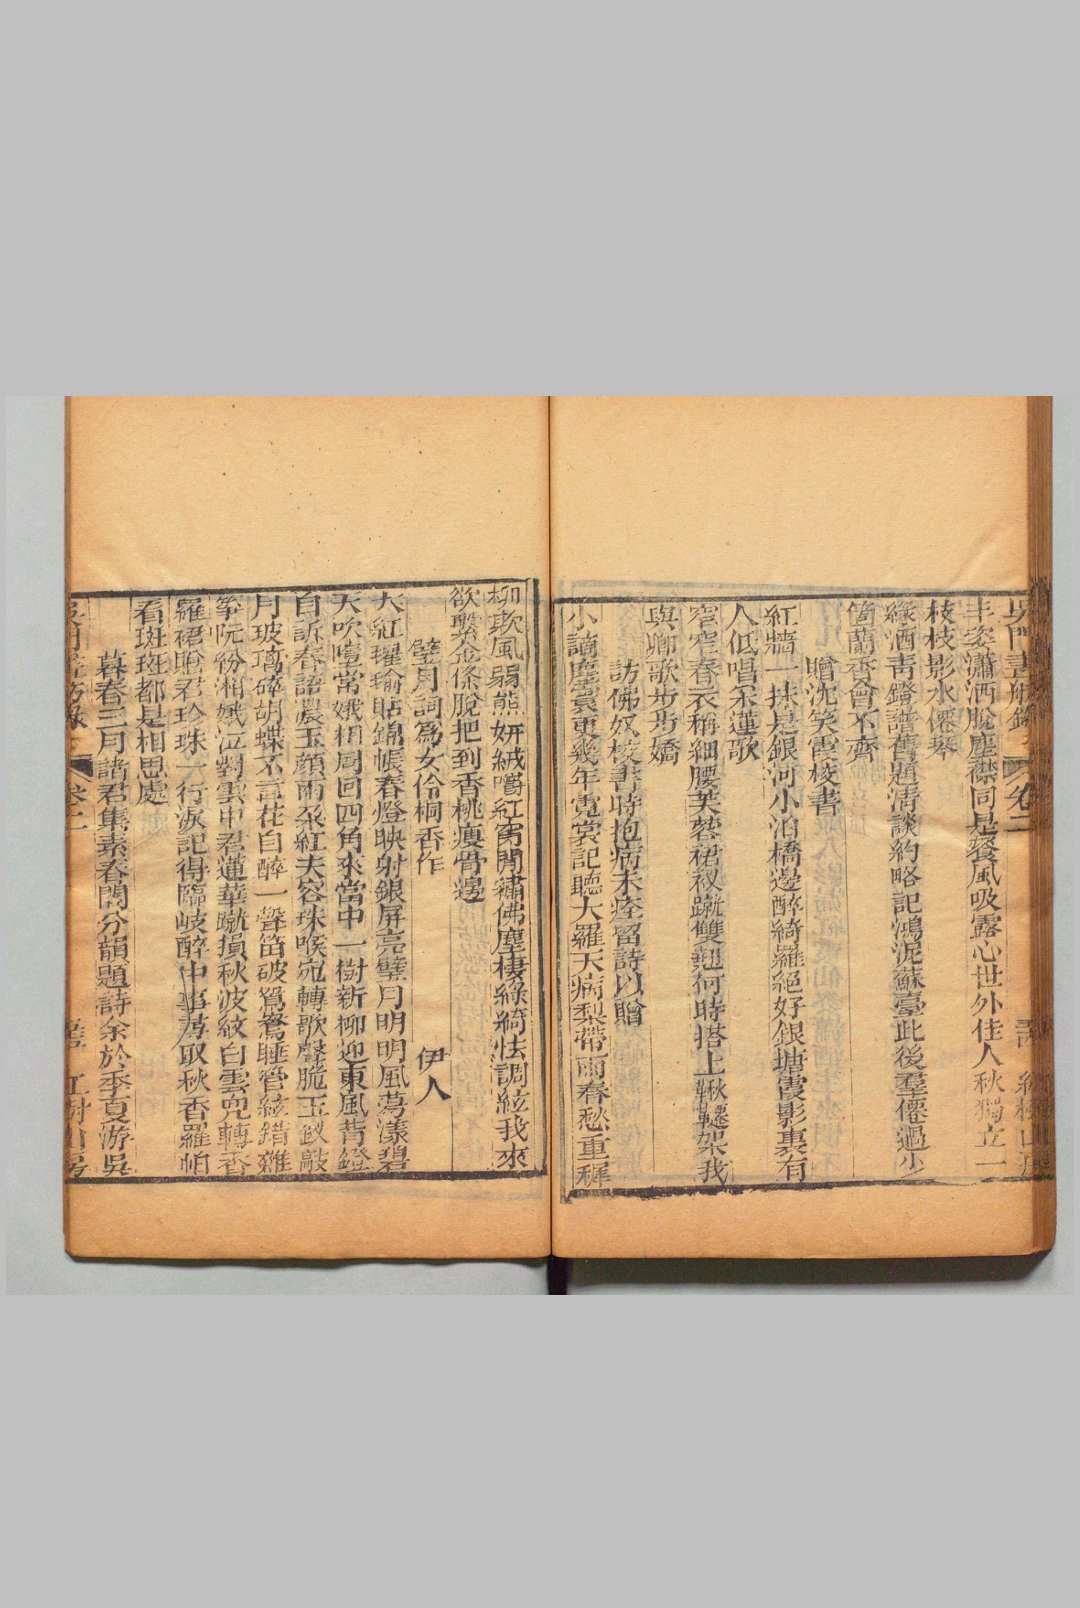 吳門畫舫錄 卷二 紅樹山房
丰姿瀟洒脫塵襟同是餐風吸露心世外佳人秋獨立一
枝枝影水僊琴
綠酒靑鐙譜舊題淸談約略記鴻泥蘇臺此後羣僊過少
箇蘭香會不齊
贈沈笑霞校書
紅牆一抹是銀河小泊橋邊醉綺羅絕好銀塘霞影裏有
人低唱采蓮歌
窄窄春衣稱細腰芙蓉裙衩蹴雙翹何時搭上鞦韆架我
與卿歌步步嬌
訪佛奴校書時抱病未痊留詩以贈
小謫塵寰更幾年霓裳記聽大羅天病梨帶雨春愁重稺
柳欹風弱態姸絨嚼紅窗閒繡佛塵棲綠綺怯調絃我來
欲繫金條脫把到香桃瘦骨邊
璧月詞爲女伶桐香作 伊人
大紅㲯㲪貼錦帳春燈映射銀屛亮璧月明明風蕩漾碧
天吹墮常娥相周回四角來當中一樹新柳迎東風背鐙
自訴春語濃玉顏雨朵紅夫容珠喉宛轉歌聲脆玉釵敲
月玻璃碎胡蝶不言花自醉一聲笛破鴛鴦睡管絃錯雜
箏阮紛湘娥泣對雲中君蓮華蹴損秋波紋白雲兜轉香
羅裙貽君珍珠一行淚記得臨岐醉中事尋取秋香羅帕
看斑斑都是相思處
暮春三月諸君集素春閣分韻題詩余於季夏游吳
卷二 紅樹山房